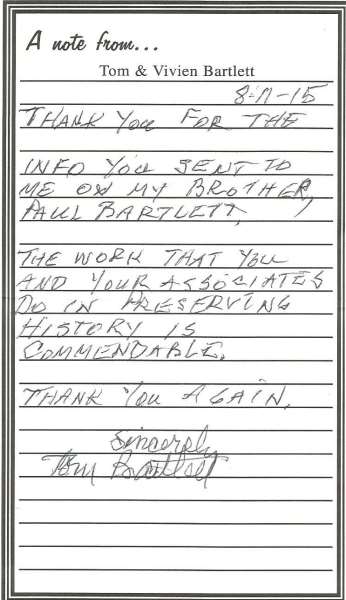 A note from...
Tom & Vivien Bartlett
8-11-15
THANK YOU FOR THE
INFO YOU SENT TO
ME ON MY BROTHER,
PAUL BARTLETT,
THE WORK THAT YOU
AND YOUR ASSOCIATES
DO IN PRESERVING
HISTORY IS
COMMENDABLE.
THANK YOU AGAIN.
Sincerely
Tom Bartlett